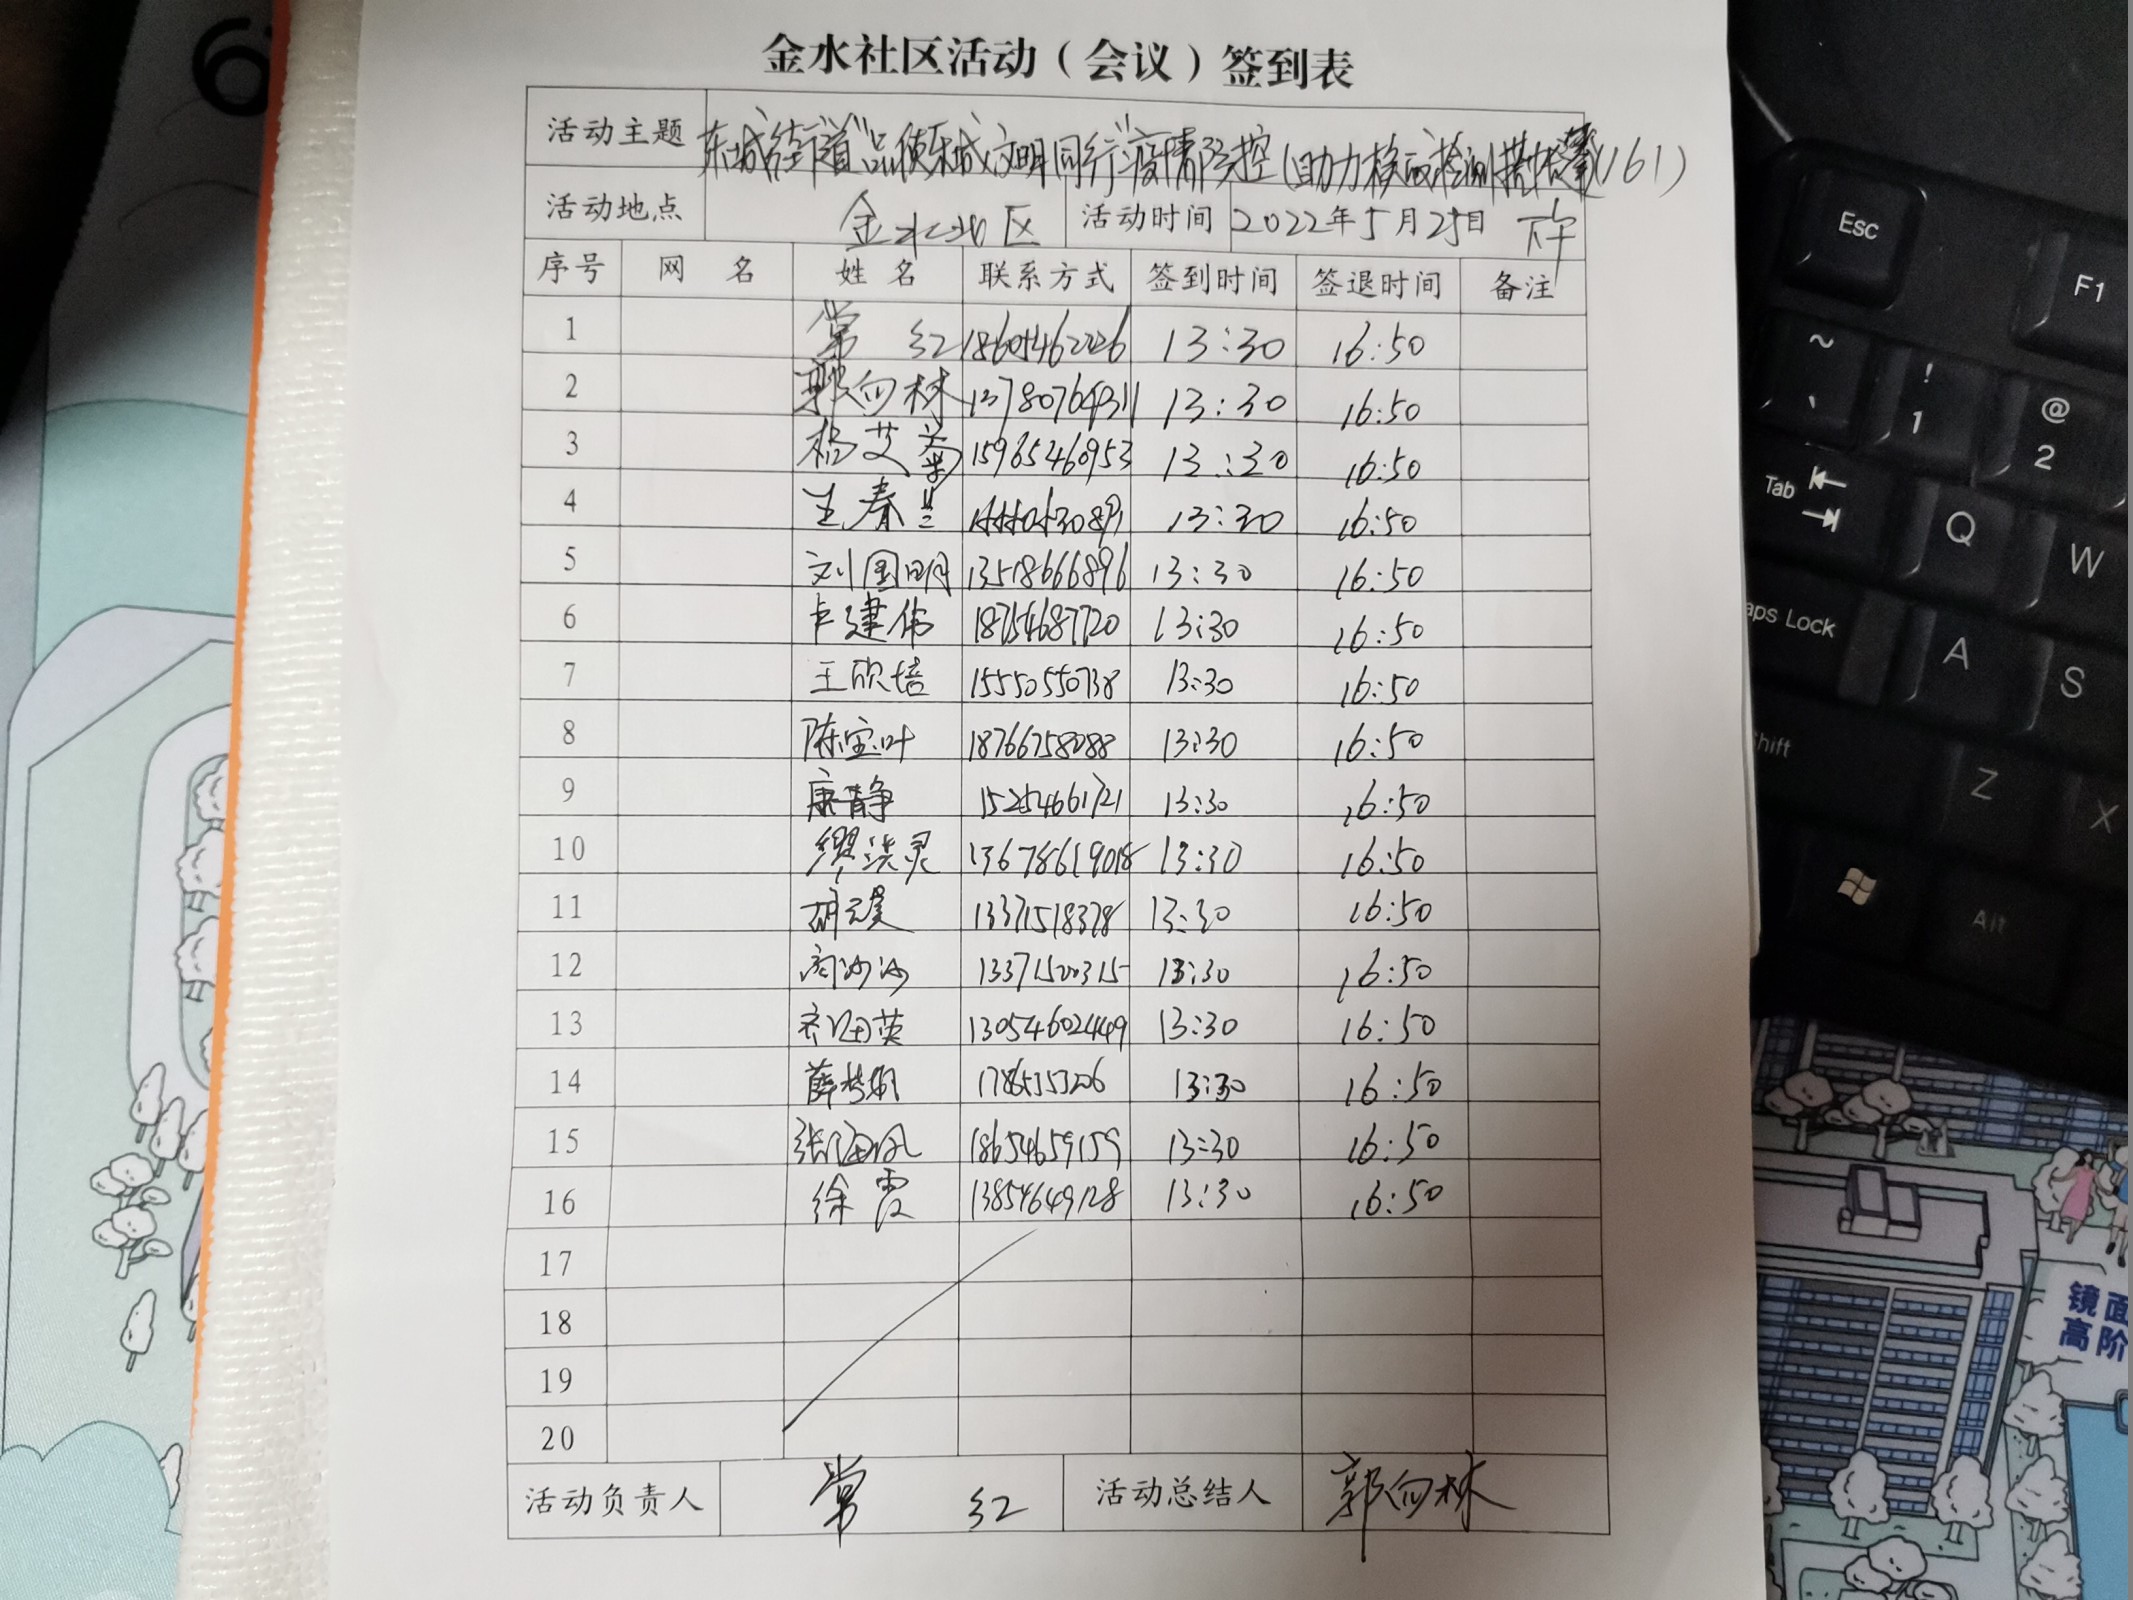 金水社区活动（会议）签到表
活动主题 东城街道"品质东城文明同行"疫情防控(助力核酸检测 161)
活动地点 金水社区 活动时间 2022年5月25日 下午
序号 网 名 姓 名 联系方式 签到时间 签退时间 备注
1 常 红 18605462226 13:30 16:50
2 郭向林 13780764311 13:30 16:50
3 杨艾菊 15965460953 13:30 16:50
4 王春兰 13:30 16:50
5 刘国明 13518666896 13:30 16:50
6 卞建伟 18754687720 13:30 16:50
7 王欣培 15550550738 13:30 16:50
8 陈宝叶 18766758088 13:30 16:50
9 康静 15254661721 13:30 16:50
10 缪洪灵 13678619018 13:30 16:50
11 13371518378 13:30 16:50
12 沙沙 13371500315 13:30 16:50
13 英 13054602449 13:30 16:50
14 薛梦娟 13:30 16:50
15 张海凤 18654659159 13:30 16:50
16 徐霞 13854649128 13:30 16:50
17
18
19
20
活动负责人 常 红 活动总结人 郭向林
Esc
F1
~
`
!
1
@
2
Tab
Q
W
aps Lock
A
S
hift
Z
X
Alt
镜面
高阶
6